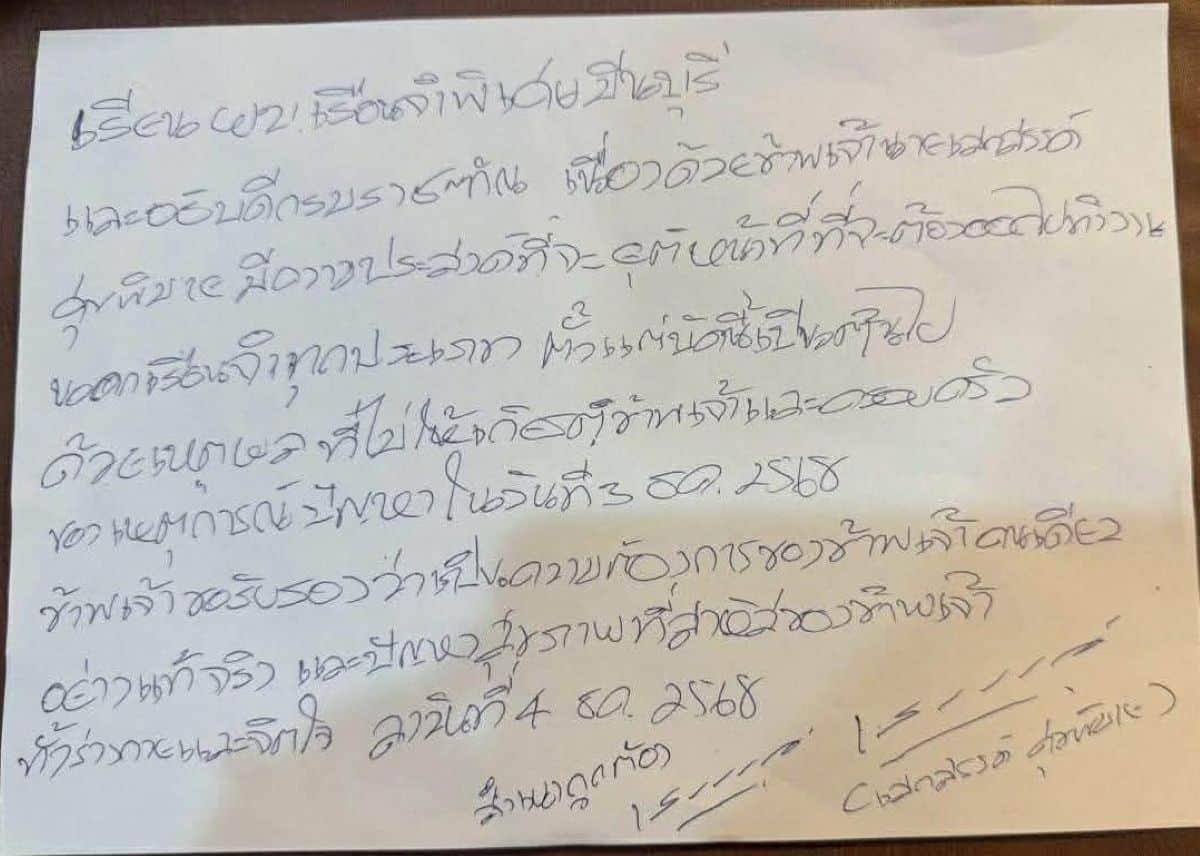 เรียน ผบ.เรือนจำพิเศษมีนบุรี
และอธิบดีกรมราชทัณ เนื่องด้วยข้าพเจ้านายเสกสรรค์
ศุขพิมาย มีความประสงค์ที่จะยุติหน้าที่ที่จะต้องออกไปทำงาน
นอกเรือนจำทุกประเภท ตั้งแต่บัดนี้เป็นต้นไป
ด้วยเหตุผล ที่ไม่ให้เกิดต่อข้าพเจ้าและครอบครัว
ของเหตุการณ์ปัญหาในวันที่ 3 ธค. 2568
ข้าพเจ้าขอรับรองว่าเป็นความต้องการของข้าพเจ้าคนเดียว
อย่างแท้จริง และปัญหาสุขภาพที่สาหัสของข้าพเจ้า
ทั้งร่างกายและจิตใจ ลงวันที่ 4 ธค. 2568
สำเนาถูกต้อง
(เสกสรรค์ ศุขพิมาย)